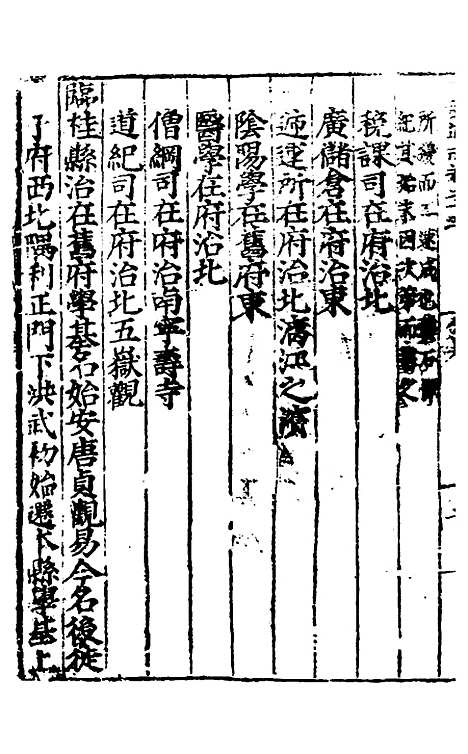 所
紀其始末因次第而書之
稅課司在府治北
廣儲倉在府治東
遞運所在府治北漓江之濱
陰陽學在舊府東
醫學在府治北
僧綱司在府治南寧壽寺
道紀司在府治北五嶽觀
臨桂縣治在舊府學基名始安唐貞觀易今名後徙
于府西北隅利正門下洪武初始遷今縣學基上